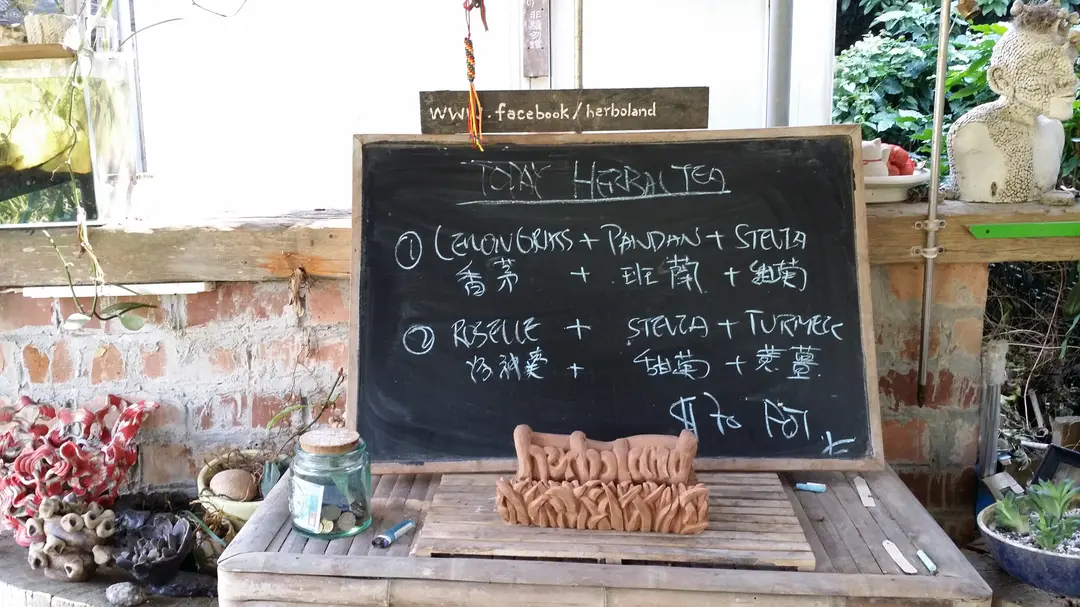 非請勿進
www.facebook/herboland
TODAY HERBAL TEA
① LEMONGRASS + PANDAN + STEVIA
香茅 + 班蘭 + 甜菊
② ROSELLE + STEVIA + TURMERIC
洛神葵 + 甜菊 + 黃薑
$70 POT